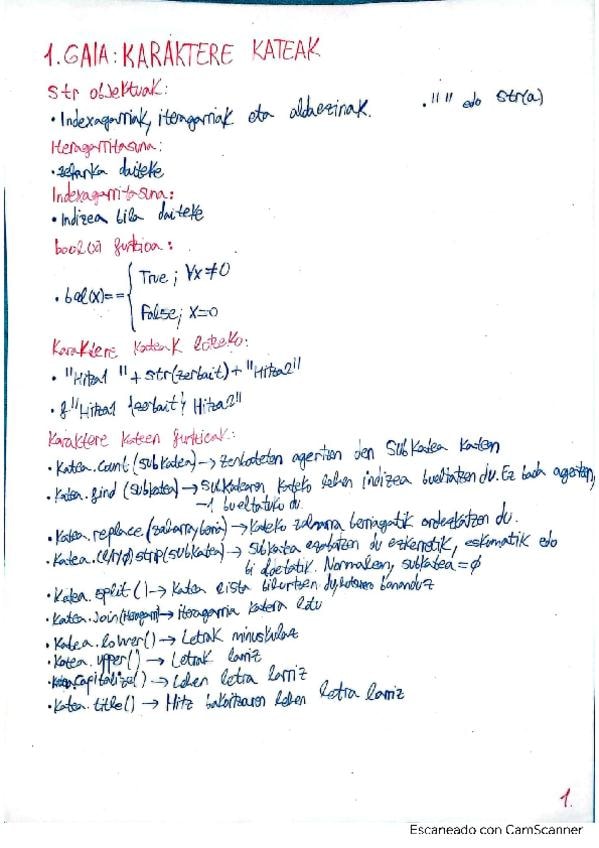 1. GAIA: KARAKTERE KATEAK
Str objektuak:
• Indexagarriak, iteragarriak eta aldaezinak. • "" edo str(a)
Iteragarritasuna:
• zeharka daiteke
Indexagarritasuna:
• Indizea bila daiteke
bool(x) funtzioa:
• bool(x)== { True; ∀x≠0
False; x=0
Karaktere kateak lotzeko:
• "Hitza1 " + str(zerbait) + "Hitza2"
• f"Hitza1 {zerbait} Hitza2"
Karaktere kateen funtzioak:
• Katea.count(subkatea) → zenbatetan agertzen den subkatea katean
• Katea.find(subkatea) → subkatearen kateko lehen indizea bueltatzen du. Ez bada agertzen,
-1 bueltatuko du.
• Katea.replace(zaharra,berria) → Kateko zaharra berriagatik ordezkatzen du.
• Katea.(l/r/ø)strip(subkatea) → subkatea ezabatzen du ezkerretik, eskumatik edo
bi aldeetatik. Normalean, subkatea = ø
• Katea.split() → Katea lista bihurtzen du, hutsunez bananduz
• Katea.join(iteragarri) → iteragarria katera lotu
• Katea.lower() → Letrak minuskulaz
• Katea.upper() → Letrak larriz
• Katea.capitalize() → Lehen letra larriz
• Katea.title() → Hitz bakoitzaren lehen letra larriz
1.
Escaneado con CamScanner